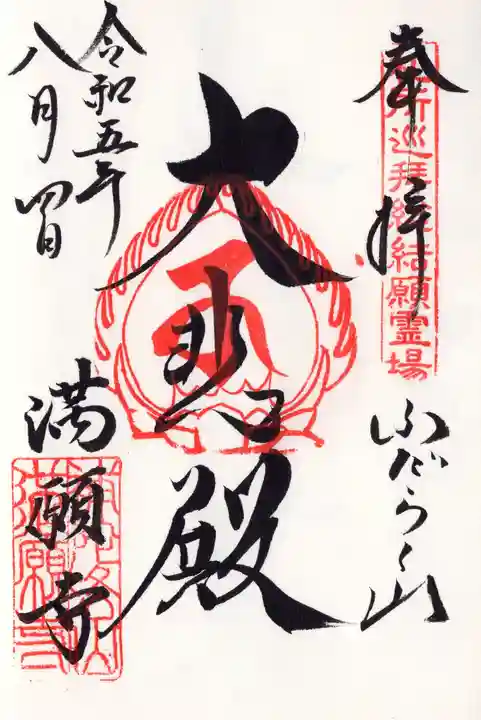 奉拝
巡拝総結願霊場
ふだらく山
大悲殿
令和五年
八月四日
満願寺